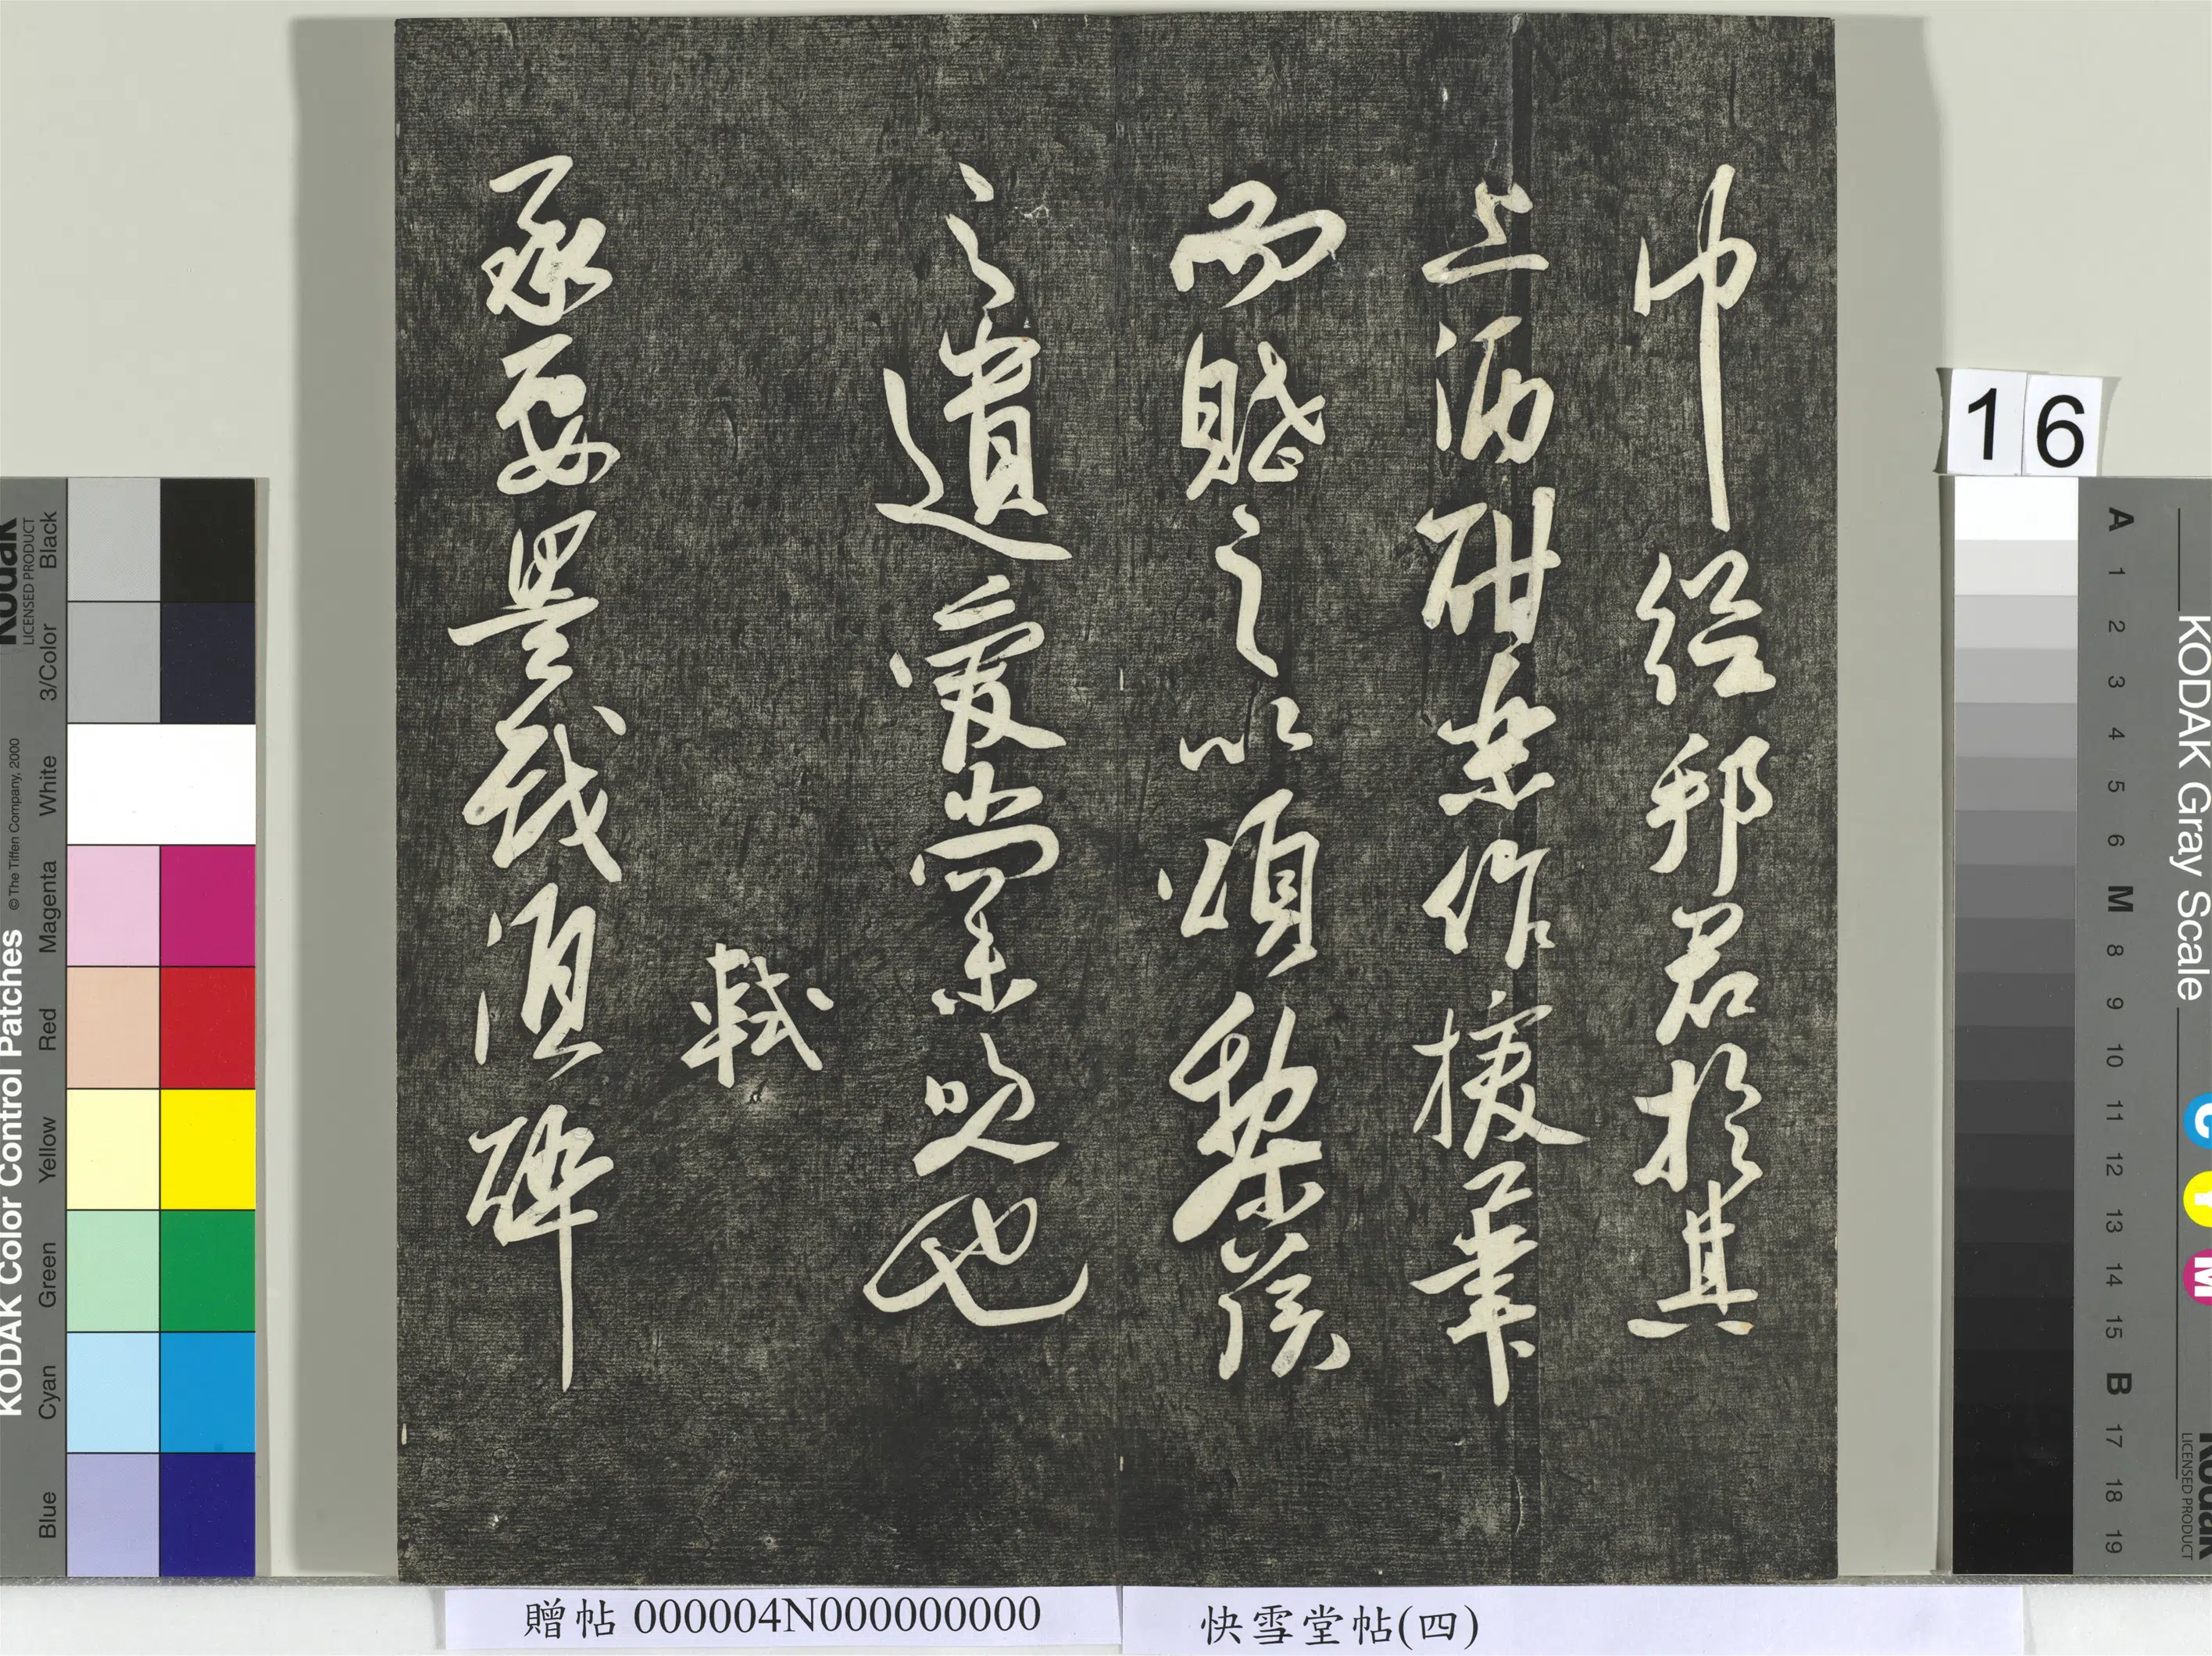 巾從邦君於其
上酒酣樂作援筆
而賦之以頌黎侯
之遺愛尚未晚也
軾
承要墨戲須醉
16
贈帖 000004N000000000
快雪堂帖(四)
KODAK Color Control Patches
© The Tiffen Company, 2000
Kodak
LICENSED PRODUCT
Black
3/Color
White
Magenta
Red
Yellow
Green
Cyan
Blue
KODAK Gray Scale
C Y M
Kodak
LICENSED PRODUCT
A 1 2 3 4 5 6 M 8 9 10 11 12 13 14 15 B 17 18 19